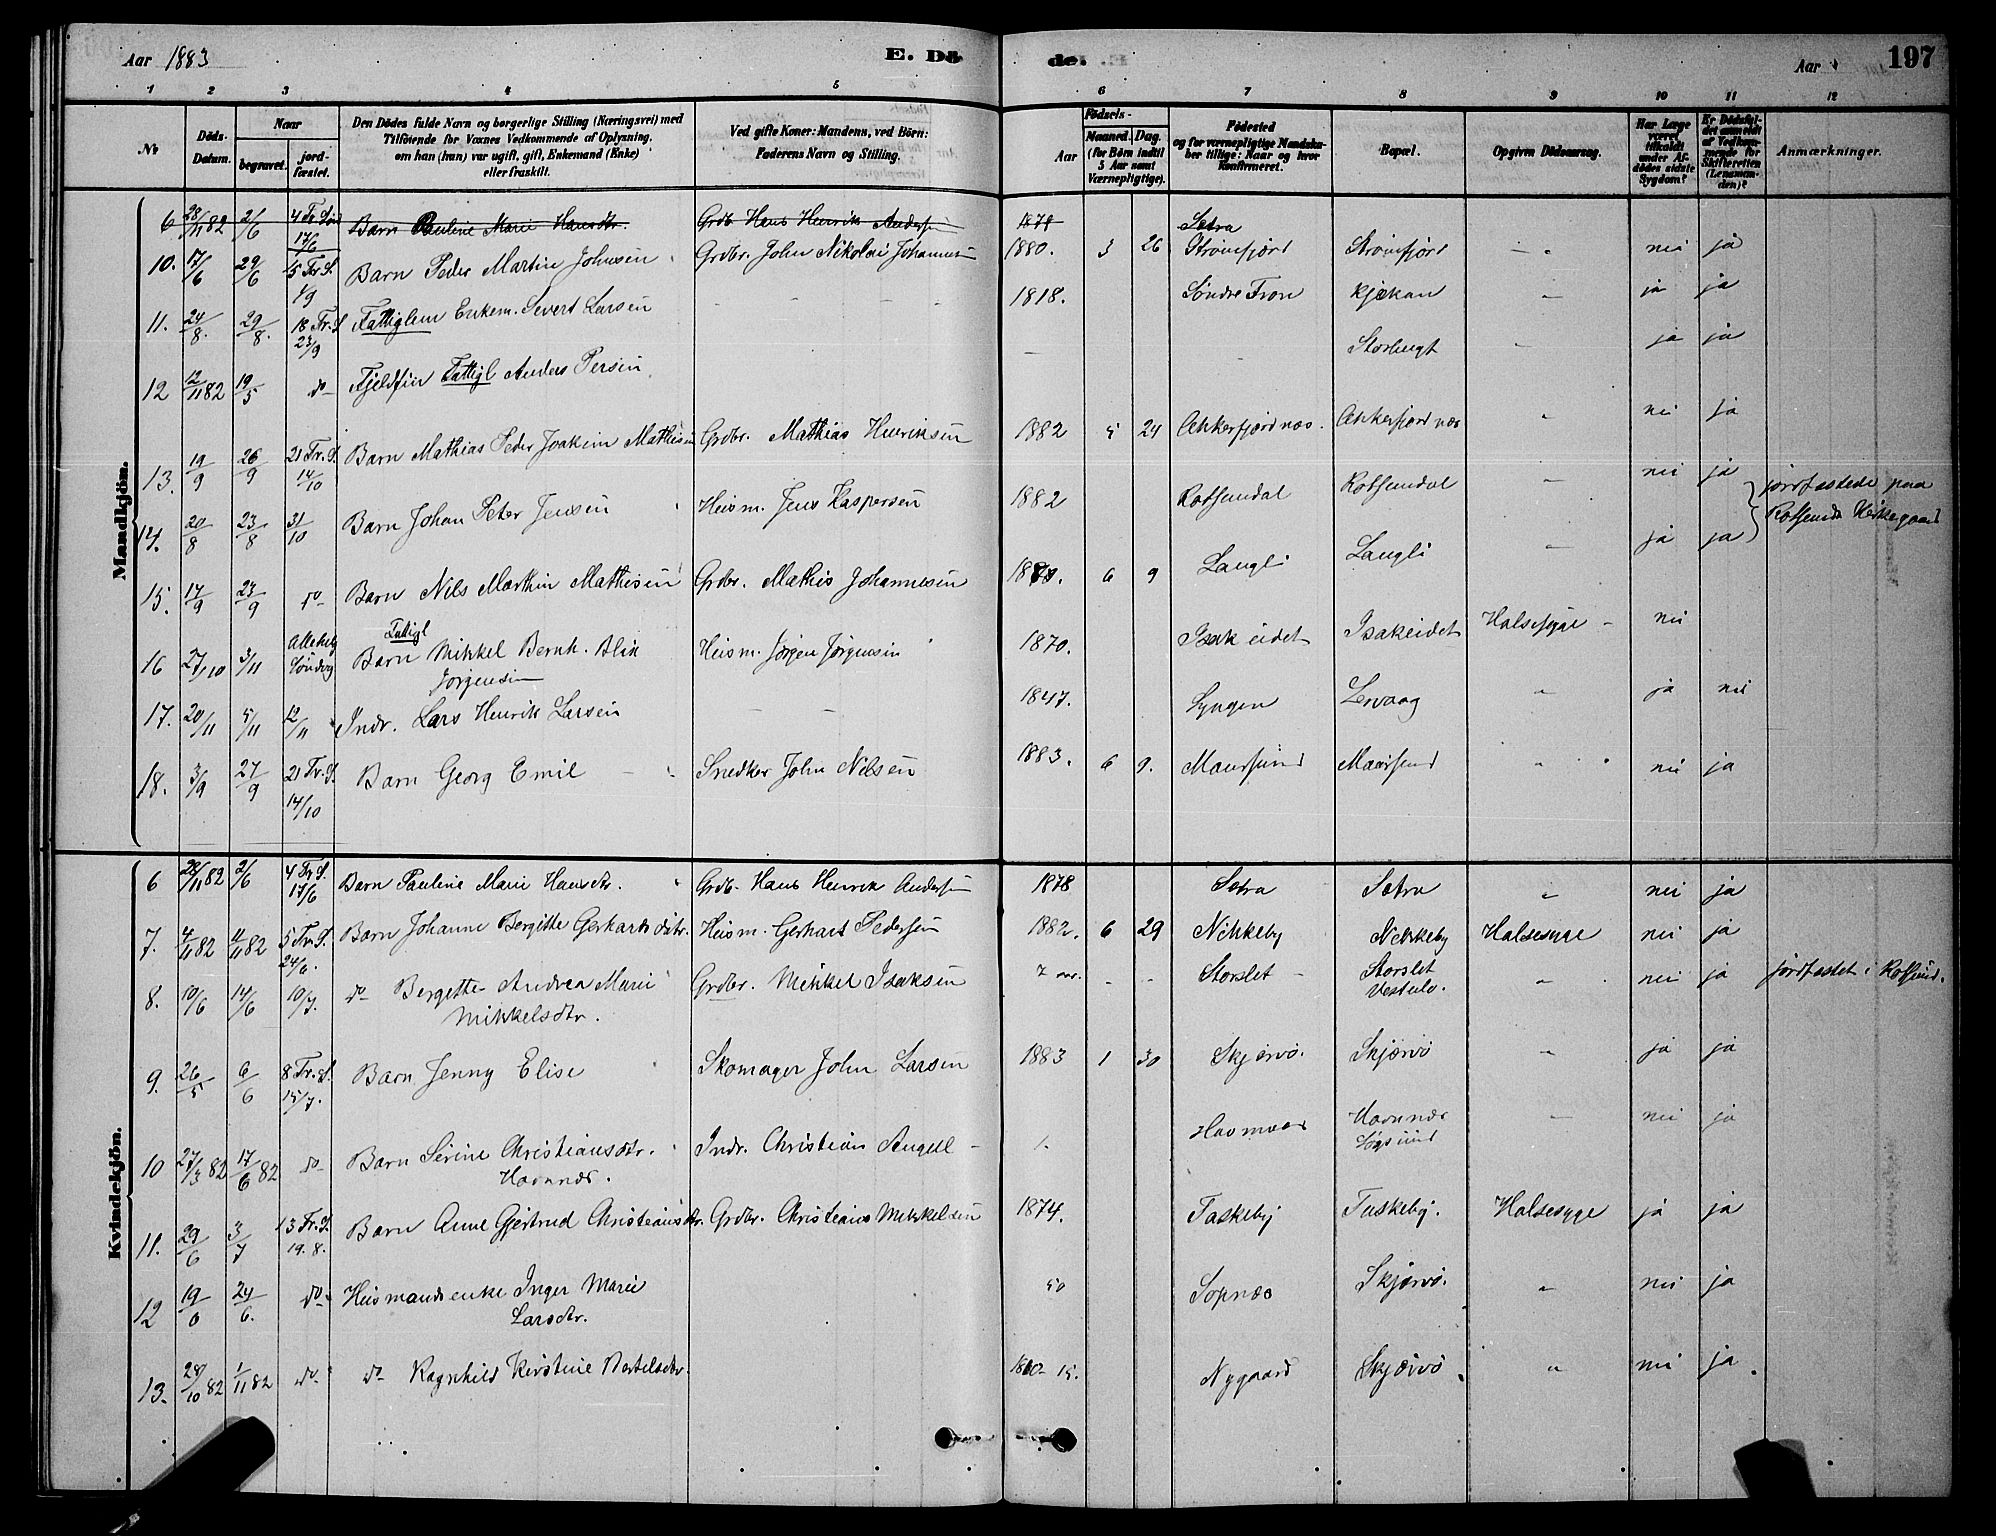 Aar 1883
E. Dö
de.
Aar
197
1 2 3 4 5 6 7 8 9 10 11 12
No
Döds-Datum.
Naar
begravet.
jord-fæstet.
Den Dödes fulde Navn og borgerlige Stilling (Næringsvei) med
Tilföiende for Voxnes Vedkommende af Oplysning,
om han (hun) var ugift, gift, Enkemand (Enke)
eller fraskilt.
Ved gifte Koner: Mandens, ved Börn:
Faderens Navn og Stilling.
Födsels-
Aar
Maaned. Dag.
(for Börn indtil
5 Aar samt
Værnepligtige).
Födested
og for værnepligtige Mandska-
ber tillige: Naar og hvor
Konfirmeret.
Bopæl.
Opgiven Dödsaarsag.
Har Læge
været
tilkaldt
under Af-
dödes sidste
Sygdom?
Er Dödsfal-
det anmeldt
af Vedkom-
mende for
Skifteretten
(Lensman-
den)?
Anmærkninger.
Mandkjön.
6 28/11 82 2/6 4 Tr. Sönd 17/6 Barn Pauline Marie Hansdtr. Grdb. Hans Henrik Anders 1878 Setra
10. 17/6 29/6 5 Tr. S. 1/9 Barn Peder Martin Johnsen Grdbr. John Nikolai Johannes 1880. 3 26 Strömfjord Strömfjord " nei ja
11. 24/8. 29/8. 18 Tr. S 23/9 Fattiglem Enkem. Severt Larsen - - - - 1818. Söndre Fron Kjækan " ja ja
12 12/11 82 19/5 do Fjeldfin Fattigl Anders Persen - - Storbugt " ja ja
13. 19/9 26/9 21 Tr. S. 14/10 Barn Mathias Peder Joakim Mathisen Grdbr. Mathias Henriksen 1882 5 24 Akkerfjordnæs. Akkerfjordnæs " nei ja
14. 20/8 23/8 31/10 Barn Johan Peter Jensen Husm. Jens Kaspersen 1882 Rotsundal Rotsundal " nei ja
jordfæstede paa
Rotsunds Kirkegaard
15. 17/9 23/9 do Barn Nils Marthin Mathisen Grdbr. Mathis Johannesen 6 9 Langli Langli " ja ja
16 27/10 3/11 Allehelg Söndag Fattigl Barn Mikkel Bernh. Jörgensen Husm. Jörgen Jörgensen 1870. Isak eidet Isakeidet Halsesyge nei
17. 20/11 5/11 12/11 Indr. Lars Henrik Larsen - - 1847. Lyngen Lervaag " ja nei
18. 3/9 27/9 21 Tr. S. 14/10 Barn Georg Emil Snedker John Nilsen 1883. 6 9. Maursund Maursund " nei ja
Kvindekjön.
6 28/11 82 2/6 4 Tr. S. 17/6 Barn Pauline Marie Hansdtr. Grdb. Hans Henrik Anders 1878 Setra Setra " nei ja
7. 4/11 82 11/11 82 5 Tr. S. 24/6. Barn Johanne Bergitte Gerhartsdatr. Husm. Gerhart Pedersen 1882. 6 29 Nikkeby Nikkeby Halsesyge nei ja
8. 10/6 14/6 10/7. do Bergette Andrea Marie Mikkelsdtr. Grdbr. Mikkel Isaksen 7 aar. - - Storslet Storslet " nei ja jordfæstet i Rotsund.
9. 26/5 6/6 8 Tr. S. 15/7. Barn Jenny Elise Skomager John Larsen 1883 1 30 Skjervö. Skjervö " ja ja
10 27/3 82 17/6 82 do Barn Serine Christiansdtr. Havnnæs. Indr. Christian Angell 1. Havnnæs Havnnæs " nei ja
11. 29/6 3/7 13 Tr. S. 19. 8. Barn Anne Gjertrud Christiansdtr. Grdbr. Christian Mikkelsen 1874. Taskeby Taskeby. Halsesyge ja ja
12 19/6 24/6. do Husmandsenke Inger Marie Larsdtr. 50 Sopnæs Skjervö. " nei ja
13. 28/10 82 1/11 82 do do Ragnhild Kirstine Bertelsdtr. Nygaard Skjervö " nei ja